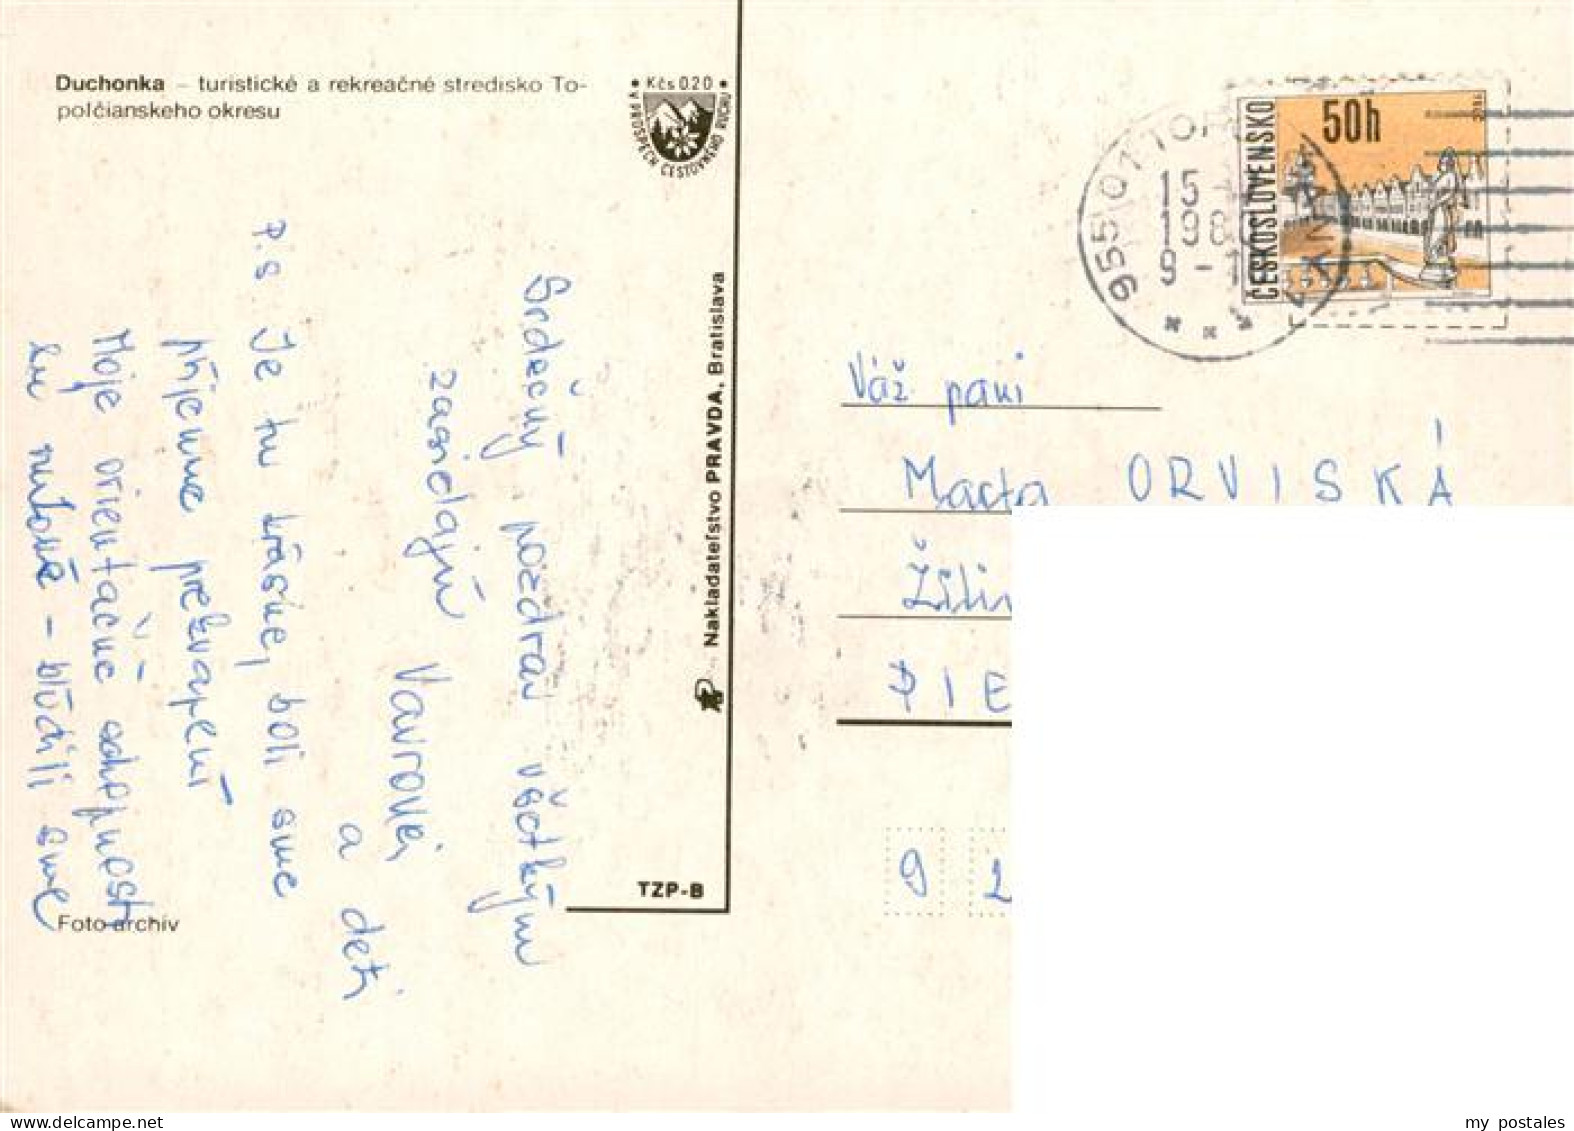 Duchonka – turistické a rekreačné stredisko To-
poľčianskeho okresu
• Kčs 0.20 •
V PROSPECH CESTOVNÉHO RUCHU
Srdečný pozdrav všetkým
zasielajú Vavrovei
a deti
P.S Je tu krásne, boli sme
příjemne prekvapení
Moje orientačné schopnosti
sú nulové – blúdili sme
Foto archív
TZP-B
Nakladateľstvo PRAVDA, Bratislava
955 01 TOPO
15
198
9 -
ČESKOSLOVENSKO
50h
Váž pani
Marta ORVISKÁ
Žilin
PIE
9 2
my postales